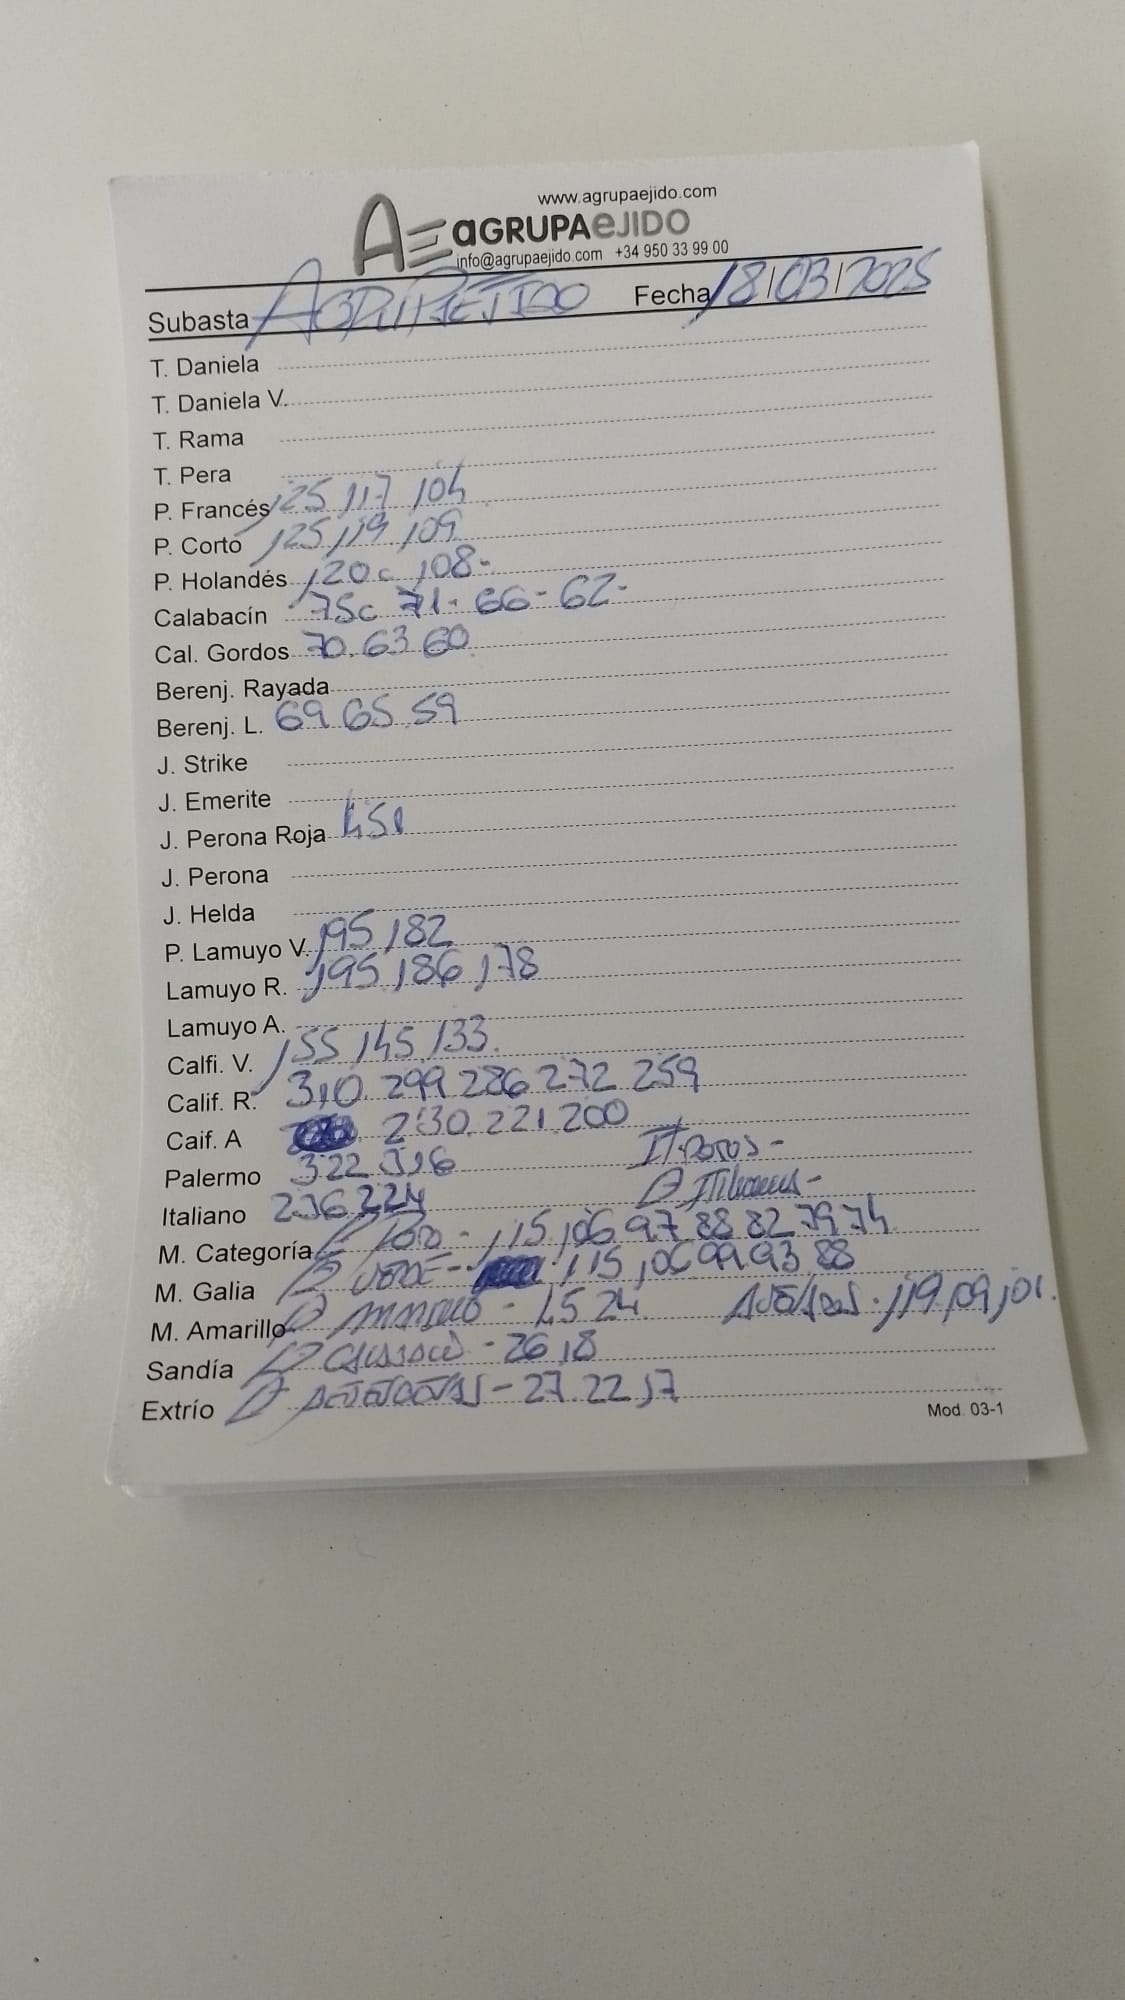 www.agrupaejido.com
AE aGRUPAeJIDO
info@agrupaejido.com +34 950 33 99 00
Subasta AGRUPAEJIDO Fecha 18/03/2025
T. Daniela
T. Daniela V.
T. Rama
T. Pera
P. Francés 125 117 104
P. Corto 125 119 109
P. Holandés 120c 108-
Calabacín 75c 71- 66- 62-
Cal. Gordos 70. 63 60
Berenj. Rayada
Berenj. L. 69 65 59
J. Strike
J. Emerite
J. Perona Roja 450
J. Perona
J. Helda
P. Lamuyo V. 195 182
Lamuyo R. 195 186 178
Lamuyo A.
Calfi. V. 155 145 133.
Calif. R. 310. 299 286 272 259
Caif. A 230. 221. 200
Palermo 322 316
Italiano 236 224
M. Categoría P ROJO - 115 106 97 88 82 79 74
M. Galia P VERDE - 115 106 99 93 88
M. Amarillo P AMARILLO - 45 24. ASURCADOS
Sandía - 26 18
Extrío - 27. 22 17
Mod. 03-1